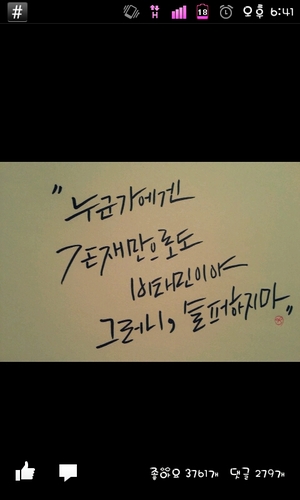 #
H
18
오후 6:41
"누군가에겐
존재만으로도
비타민이야
그러니, 슬퍼하지마"
좋아요 3761개 댓글 279개